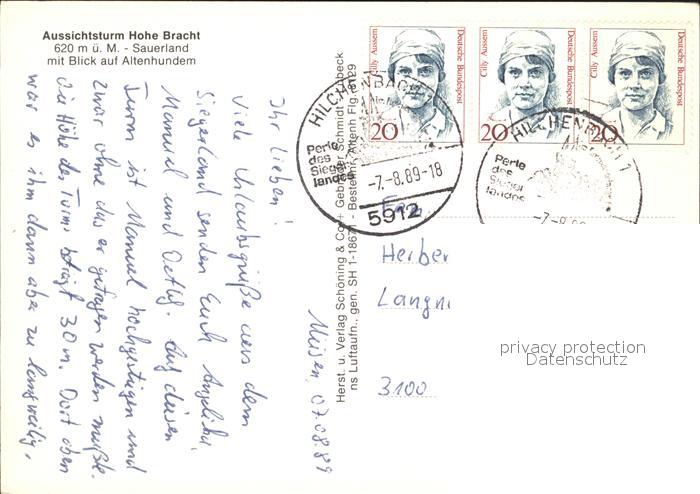 Aussichtsturm Hohe Bracht
620 m ü. M. - Sauerland
mit Blick auf Altenhundem
Müsen, 07.08.89
Ihr Lieben!
Viele Urlaubsgrüße aus dem
Siegerland senden Euch Angelika,
Manuel und Detlef. Auf diesen
Turm ist Manuel hochgestiegen und
zwar ohne das er getragen werden mußte.
Die Höhe des Turms beträgt 30 m. Dort oben
war es ihm dann aber zu langweilig.
Herst. u. Verlag Schöning & Co. + Gebrüder Schmidt
ns Luftaufn., gen. SH 1-1867 - Bestellnr. Altenh Flg. 6129
Cilly Aussem
Deutsche Bundespost
20
Cilly Aussem
Deutsche Bundespost
20
Cilly Aussem
Deutsche Bundespost
20
HILCHENBACH
Perle
des
Sieger
landes
-7.-8.89-18
5912
HILCHENBACH 1
Perle
des
Sieger
landes
-7.-8.89
Herber
Langni
3100
privacy protection
Datenschutz